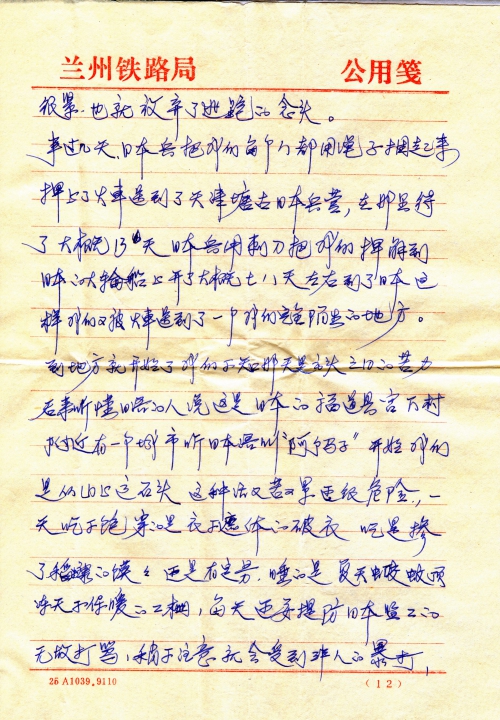 兰州铁路局 公用笺
很累.也就放弃了逃跑的念头。
事过几天.日本兵把我们每个人都用绳子捆起来
押上了火车送到了天津塘古日本兵营,在那里待
了大概13、4天日本兵用刺刀把我们押解到
日本的大轮船上开了大概七八天左右到了日本这
样我们又被火车送到了一个我们完全陌生的地方。
到地方就开始了我们不知那天是之日的苦力
后来听懂日语的人说这是日本的福道县宫下村
附近有一个城市听日本语叫“阿尔玛子”开始我们
是从山上运石头 这种活又苦又累还很危险.,一
天吃不饱穿的是衣不遮体的破衣 吃是掺
了稻糠的馍々还是有定劳.睡的是夏天蚊
冬天不保暖的工棚,每天还要提防日本监工的
无故打骂,稍不注意就会受到非人的暴打,
25A1039.9110 (12)